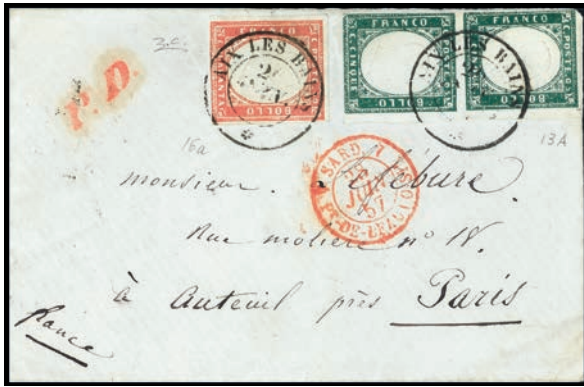 P.D.
FRANCO
BOLLO
AIX LES BAINS
FRANCO
C. CINQUE
POSTE
BOLLO
FRANCO
C. POSTE
BOLLO
AIX LES BAINS
16a
13A
SARD.
JUIL
57
PT-DE-BEAUVOISIN
monsieur Lefébure
Rue molière n° 18.
à Auteuil près Paris
france